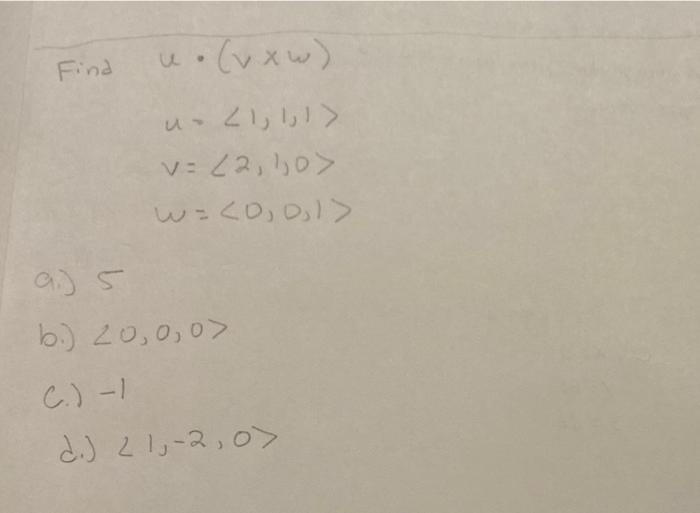 Find u • (v x w)
u = <1, 1, 1>
v = <2, 1, 0>
w = <0, 0, 1>
a.) 5
b.) <0, 0, 0>
c.) -1
d.) <1, -2, 0>